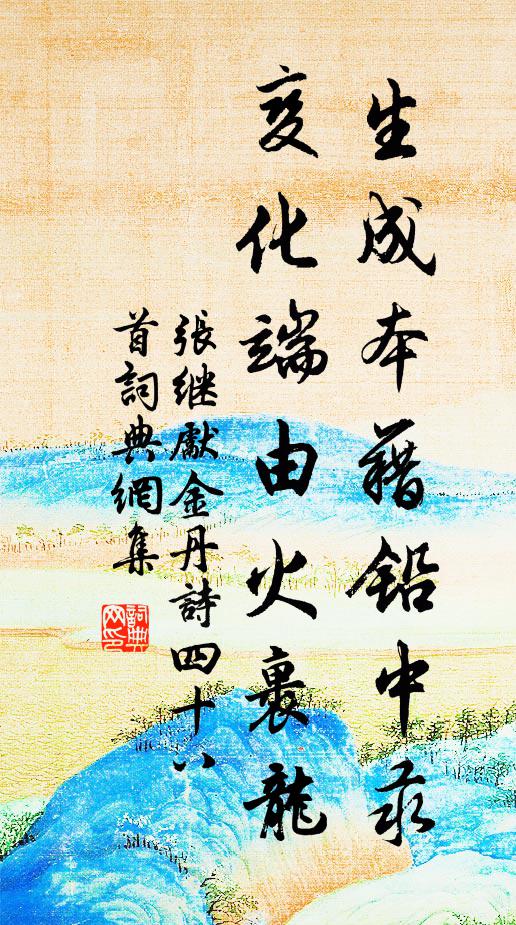 生成本藉鉛中汞
变化端由火裏龍
張继獻金丹詩四十八
首詞典網集
詞典
网印